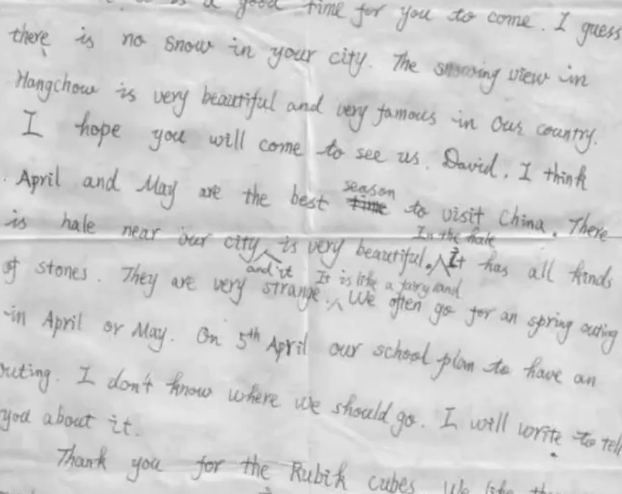 a good time for you to come. I guess
there is no snow in your city. The snowing view in
Hangchow is very beautiful and very famous in our country.
I hope you will come to see us. David, I think
April and May are the best time season to visit China. There
is hale near our city and it is very beautiful. In the hale It has all kinds
of stones. They are very strange. It is like a fairy land We often go for an spring outing
in April or May. On 5th April our school plan to have an
outing. I don't know where we should go. I will write to tell
you about it.
Thank you for the Rubik cubes We like